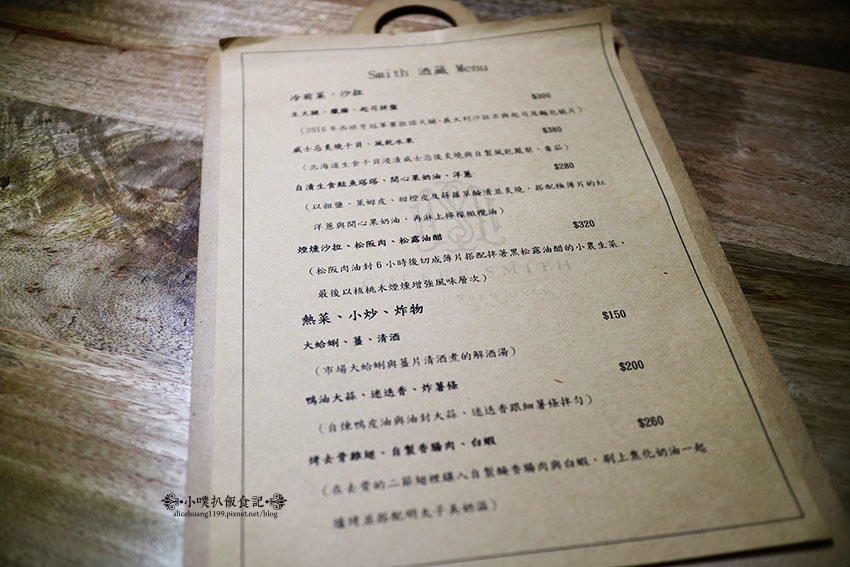 Smith 酒藏 Menu
冷前菜、沙拉
生火腿、臘腸、起司拼盤 $300
(2016年西班牙冠軍塞拉諾火腿、義大利沙拉米與起司及麵包脆片)
威士忌炙燒干貝、風乾水果 $380
(北海道生食干貝浸漬威士忌後炙燒與自製風乾鳳梨、番茄)
自漬生食鮭魚塔塔、開心果奶油、洋蔥 $280
(以粗鹽、萊姆皮、甜橙皮及蒔蘿草醃漬並炙燒，搭配極薄片的紅
洋蔥與開心果奶油，再淋上檸檬橄欖油)
煙燻沙拉、松阪肉、松露油醋 $320
(松阪肉油封6小時後切成薄片搭配拌著黑松露油醋的小農生菜，
最後以核桃木煙燻增強風味層次)
熱菜、小炒、炸物
大蛤蜊、薑、清酒 $150
(市場大蛤蜊與薑片清酒煮的解酒湯)
鴨油大蒜、迷迭香、炸薯條 $200
(自煉鴨皮油與油封大蒜、迷迭香跟細薯條拌勻)
烤去骨雞翅、自製香腸肉、白蝦 $260
(在去骨的二節翅裡鑲入自製鹹香腸肉與白蝦，刷上焦化奶油一起
爐烤並搭配明太子美奶滋)
小噗扒飯食記
alicehuang1199.pixnet.net/blog